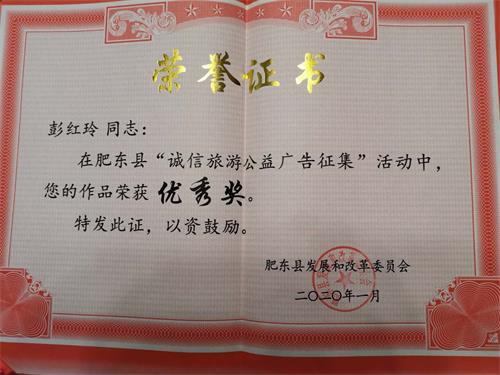 荣誉证书
彭红玲 同志：
在肥东县“诚信旅游公益广告征集”活动中，
您的作品荣获 优秀奖。
特发此证，以资鼓励。
肥东县发展和改革委员会
二〇二〇年一月